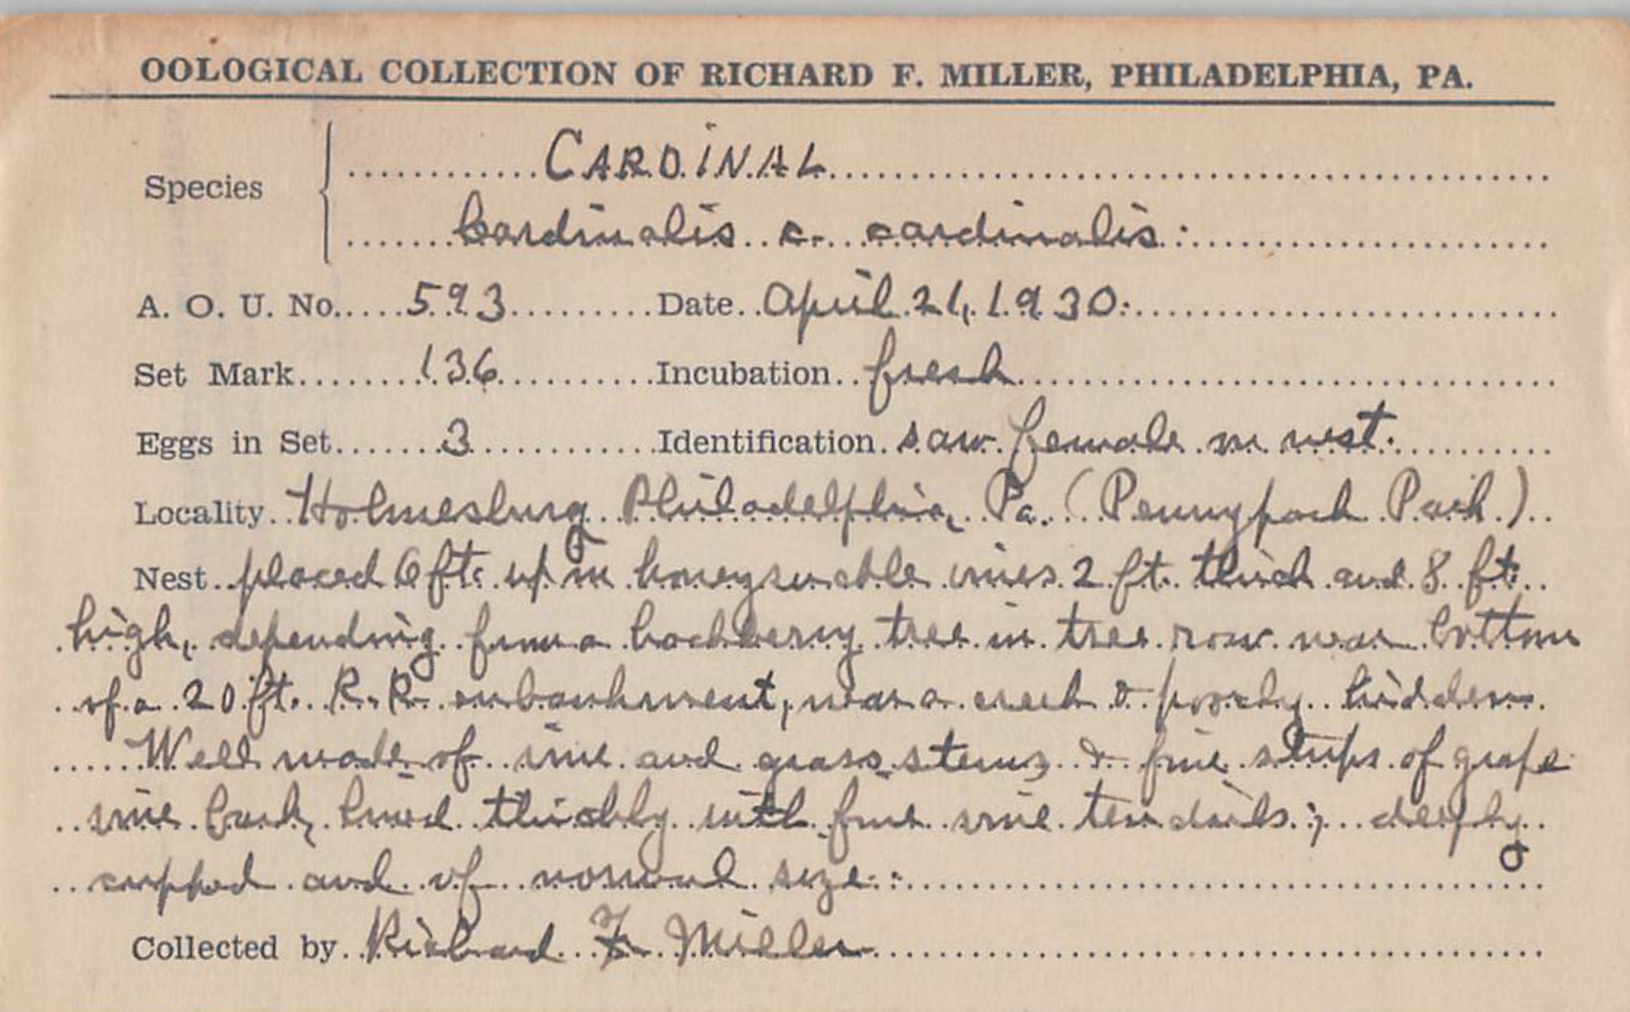 OOLOGICAL COLLECTION OF RICHARD F. MILLER, PHILADELPHIA, PA.
Species CARDINAL
Cardinalis c. cardinalis.
A. O. U. No. 593 Date April 21, 1930.
Set Mark 136 Incubation fresh
Eggs in Set 3 Identification saw female on nest.
Locality Holmesburg Philadelphia, Pa. (Pennypack Park.)
Nest placed 6 ft. up in honeysuckle vines 2 ft. thick and 8 ft.
high, depending from a hackberry tree in tree row near bottom
of a 20 ft. R.R. embankment, near a creek & poorly hidden.
Well made of vine and grass stems & fine strips of grape
vine bark, lined thickly with fine vine tendrils; deeply
cupped and of normal size.
Collected by Richard F. Miller